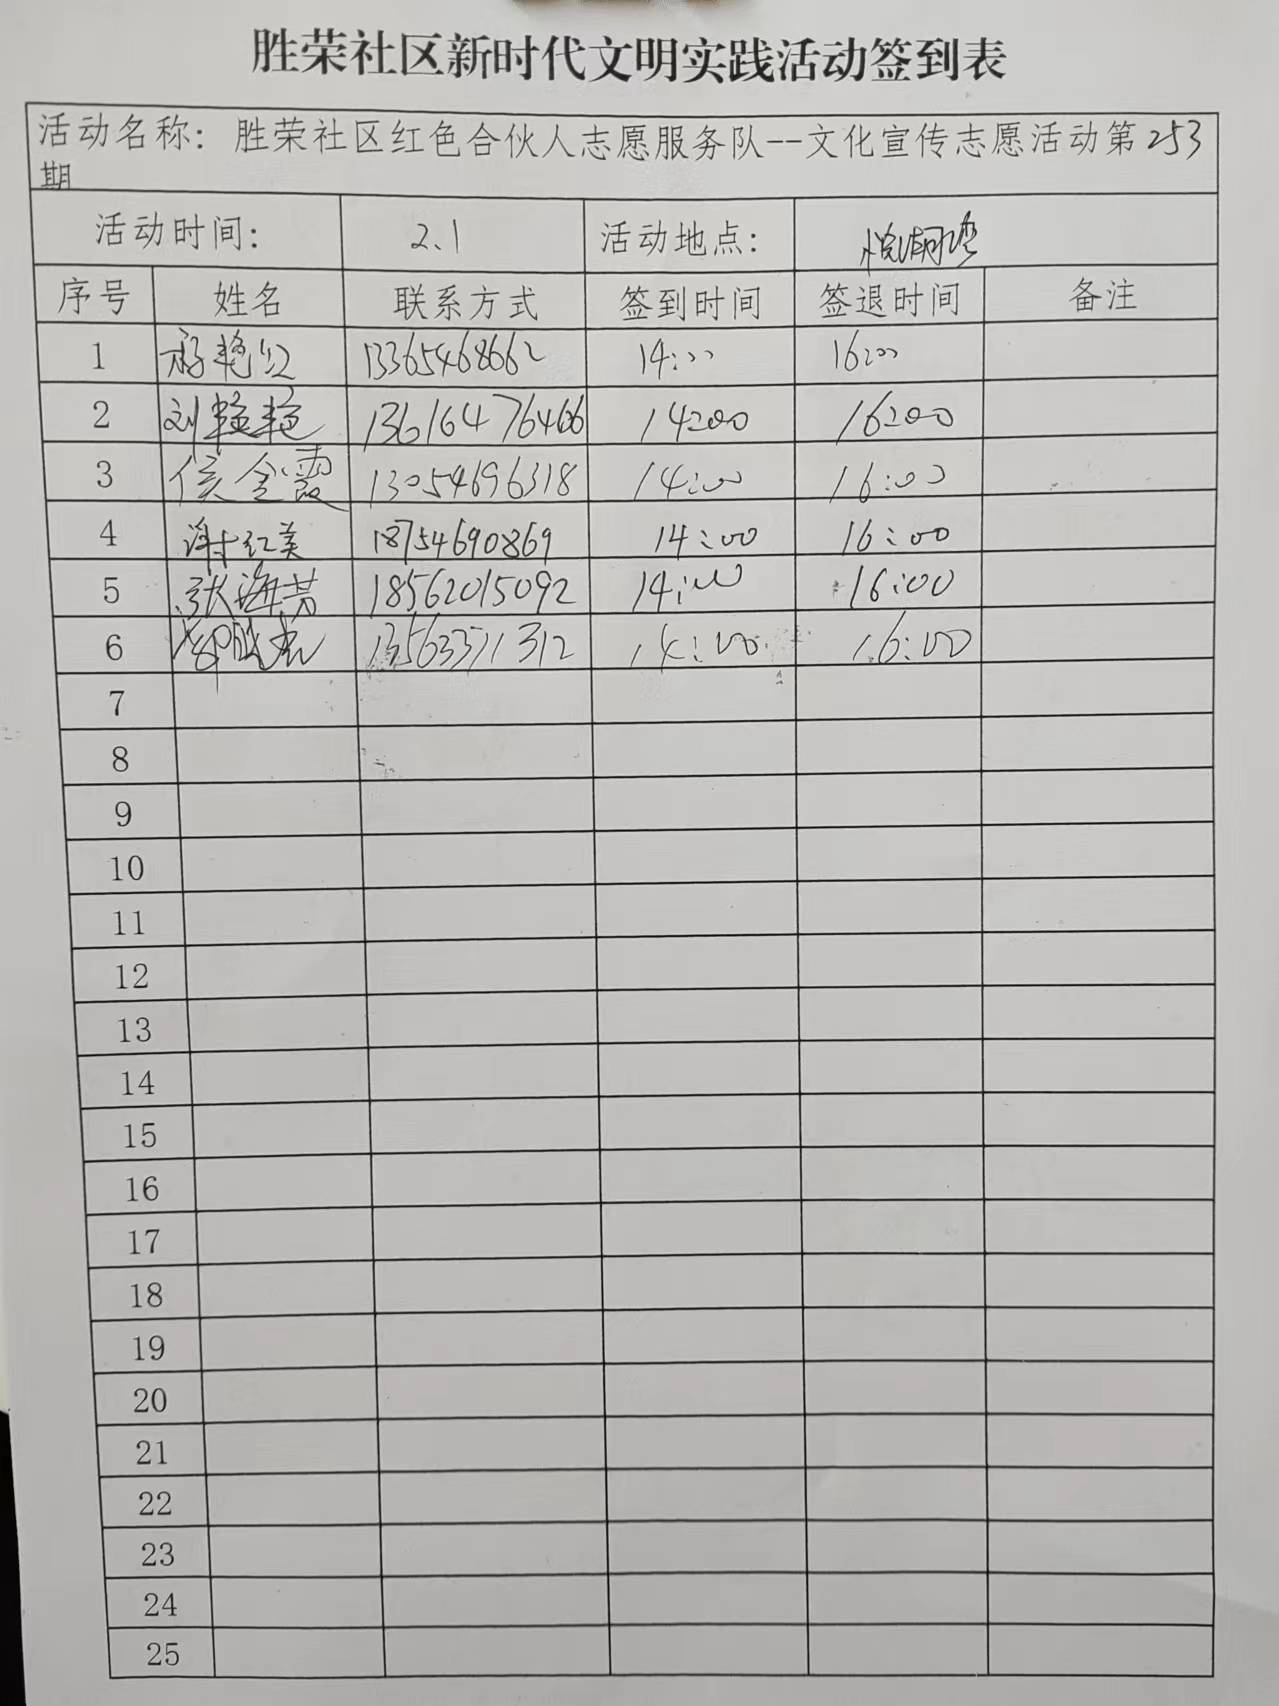 胜荣社区新时代文明实践活动签到表
活动名称：胜荣社区红色合伙人志愿服务队--文化宣传志愿活动第253
期
活动时间： 2.1 活动地点： 悦湖湾
序号 姓名 联系方式 签到时间 签退时间 备注
1 艳红 13365468662 14:00 16:00
2 刘艳艳 13616476466 14:00 16:00
3 侯金霞 13054696318 14:00 16:00
4 谢红美 18754690869 14:00 16:00
5 张海芳 18562015092 14:00 16:00
6 13563371312 14:00 16:00
7
8
9
10
11
12
13
14
15
16
17
18
19
20
21
22
23
24
25